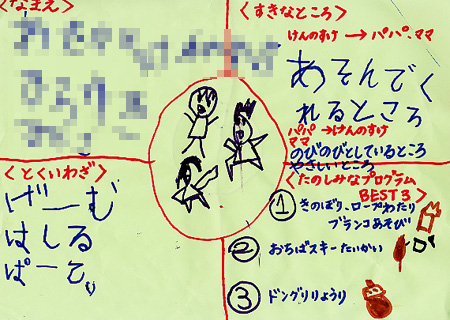 ＜なまえ＞
＜すきなところ＞
けんのすけ → パパ、ママ
あそんでく
れるところ
パパ →けんのすけ
ママ
のびのびとしているところ
やさしいところ
＜とくいわざ＞
げーむ
はしる
ぱーと
＜たのしみなプログラム
BEST3＞
① きのぼり、ロープわたり
ブランコあそび
② おちばスキーたいかい
③ ドングリりょうり